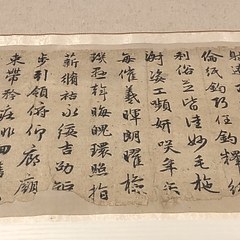 倫紙鈞巧任釣釋紛
利俗並皆佳妙毛施
淑姿工頻妍咲年矢
每催羲暉朗曜琁
璣懸斡晦魄環照指
薪脩祜永綏吉劭矩
步引領俯仰廊廟
束帶矜莊徘徊